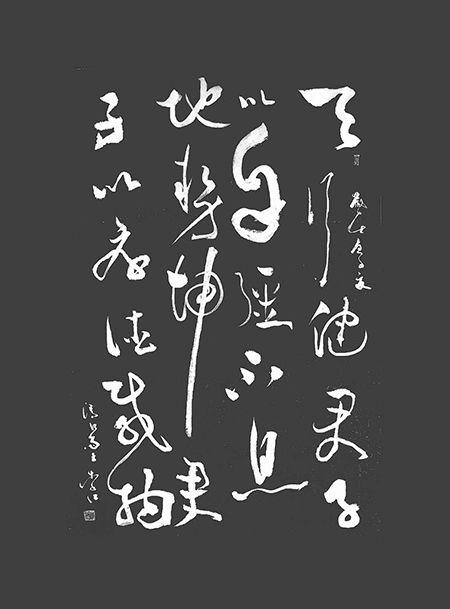 天行健君子
以自强不息
地勢坤君
子以厚德載物